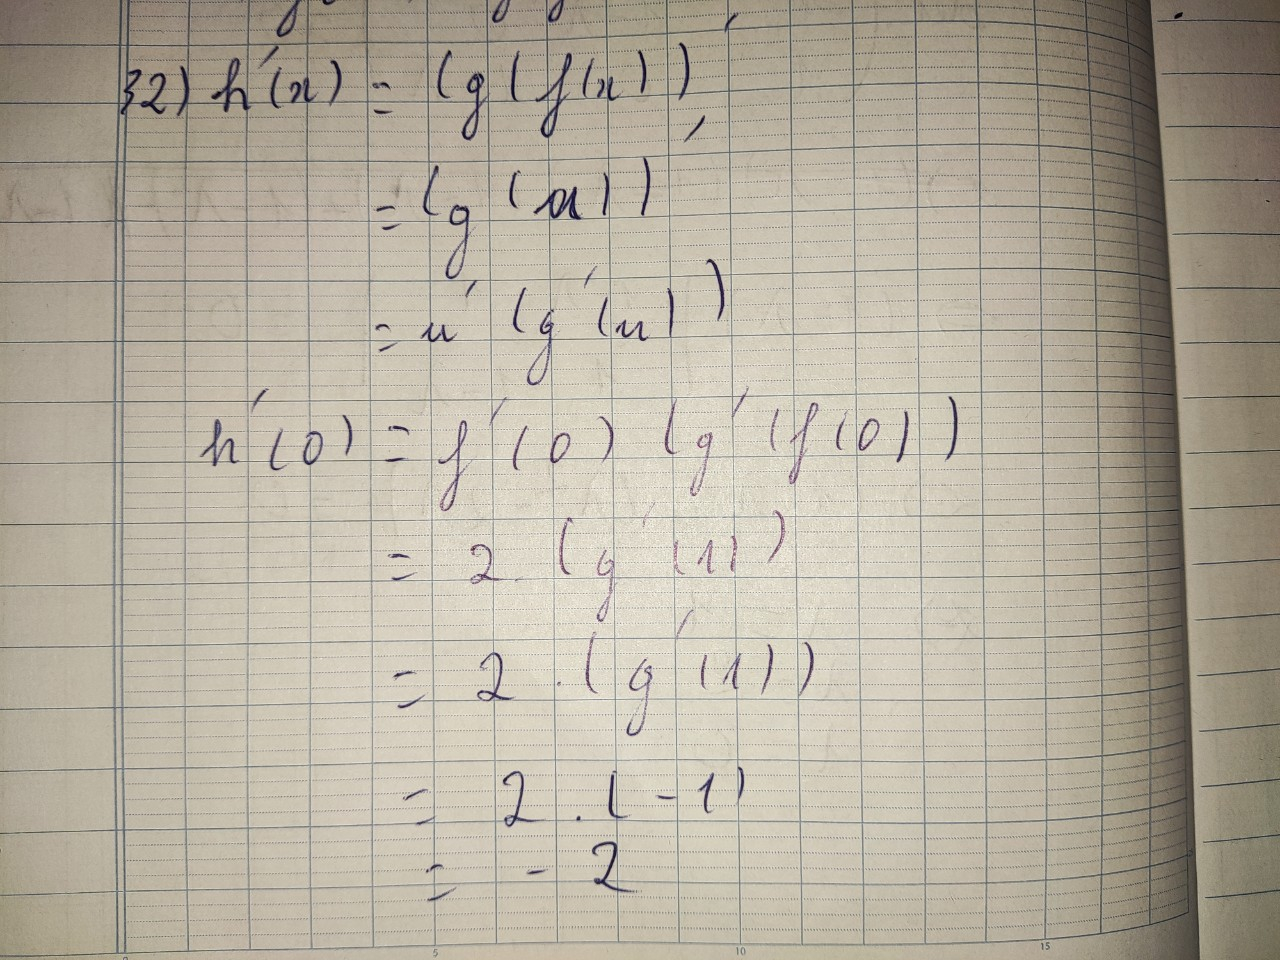 32) h'(x) = (g(f(x))'
= (g(u))'
= u' (g'(u))
h'(0) = f'(0) (g'(f(0))
= 2. (g'(1))
= 2 .(g'(1))
= 2 .(-1)
= -2
5 10 15